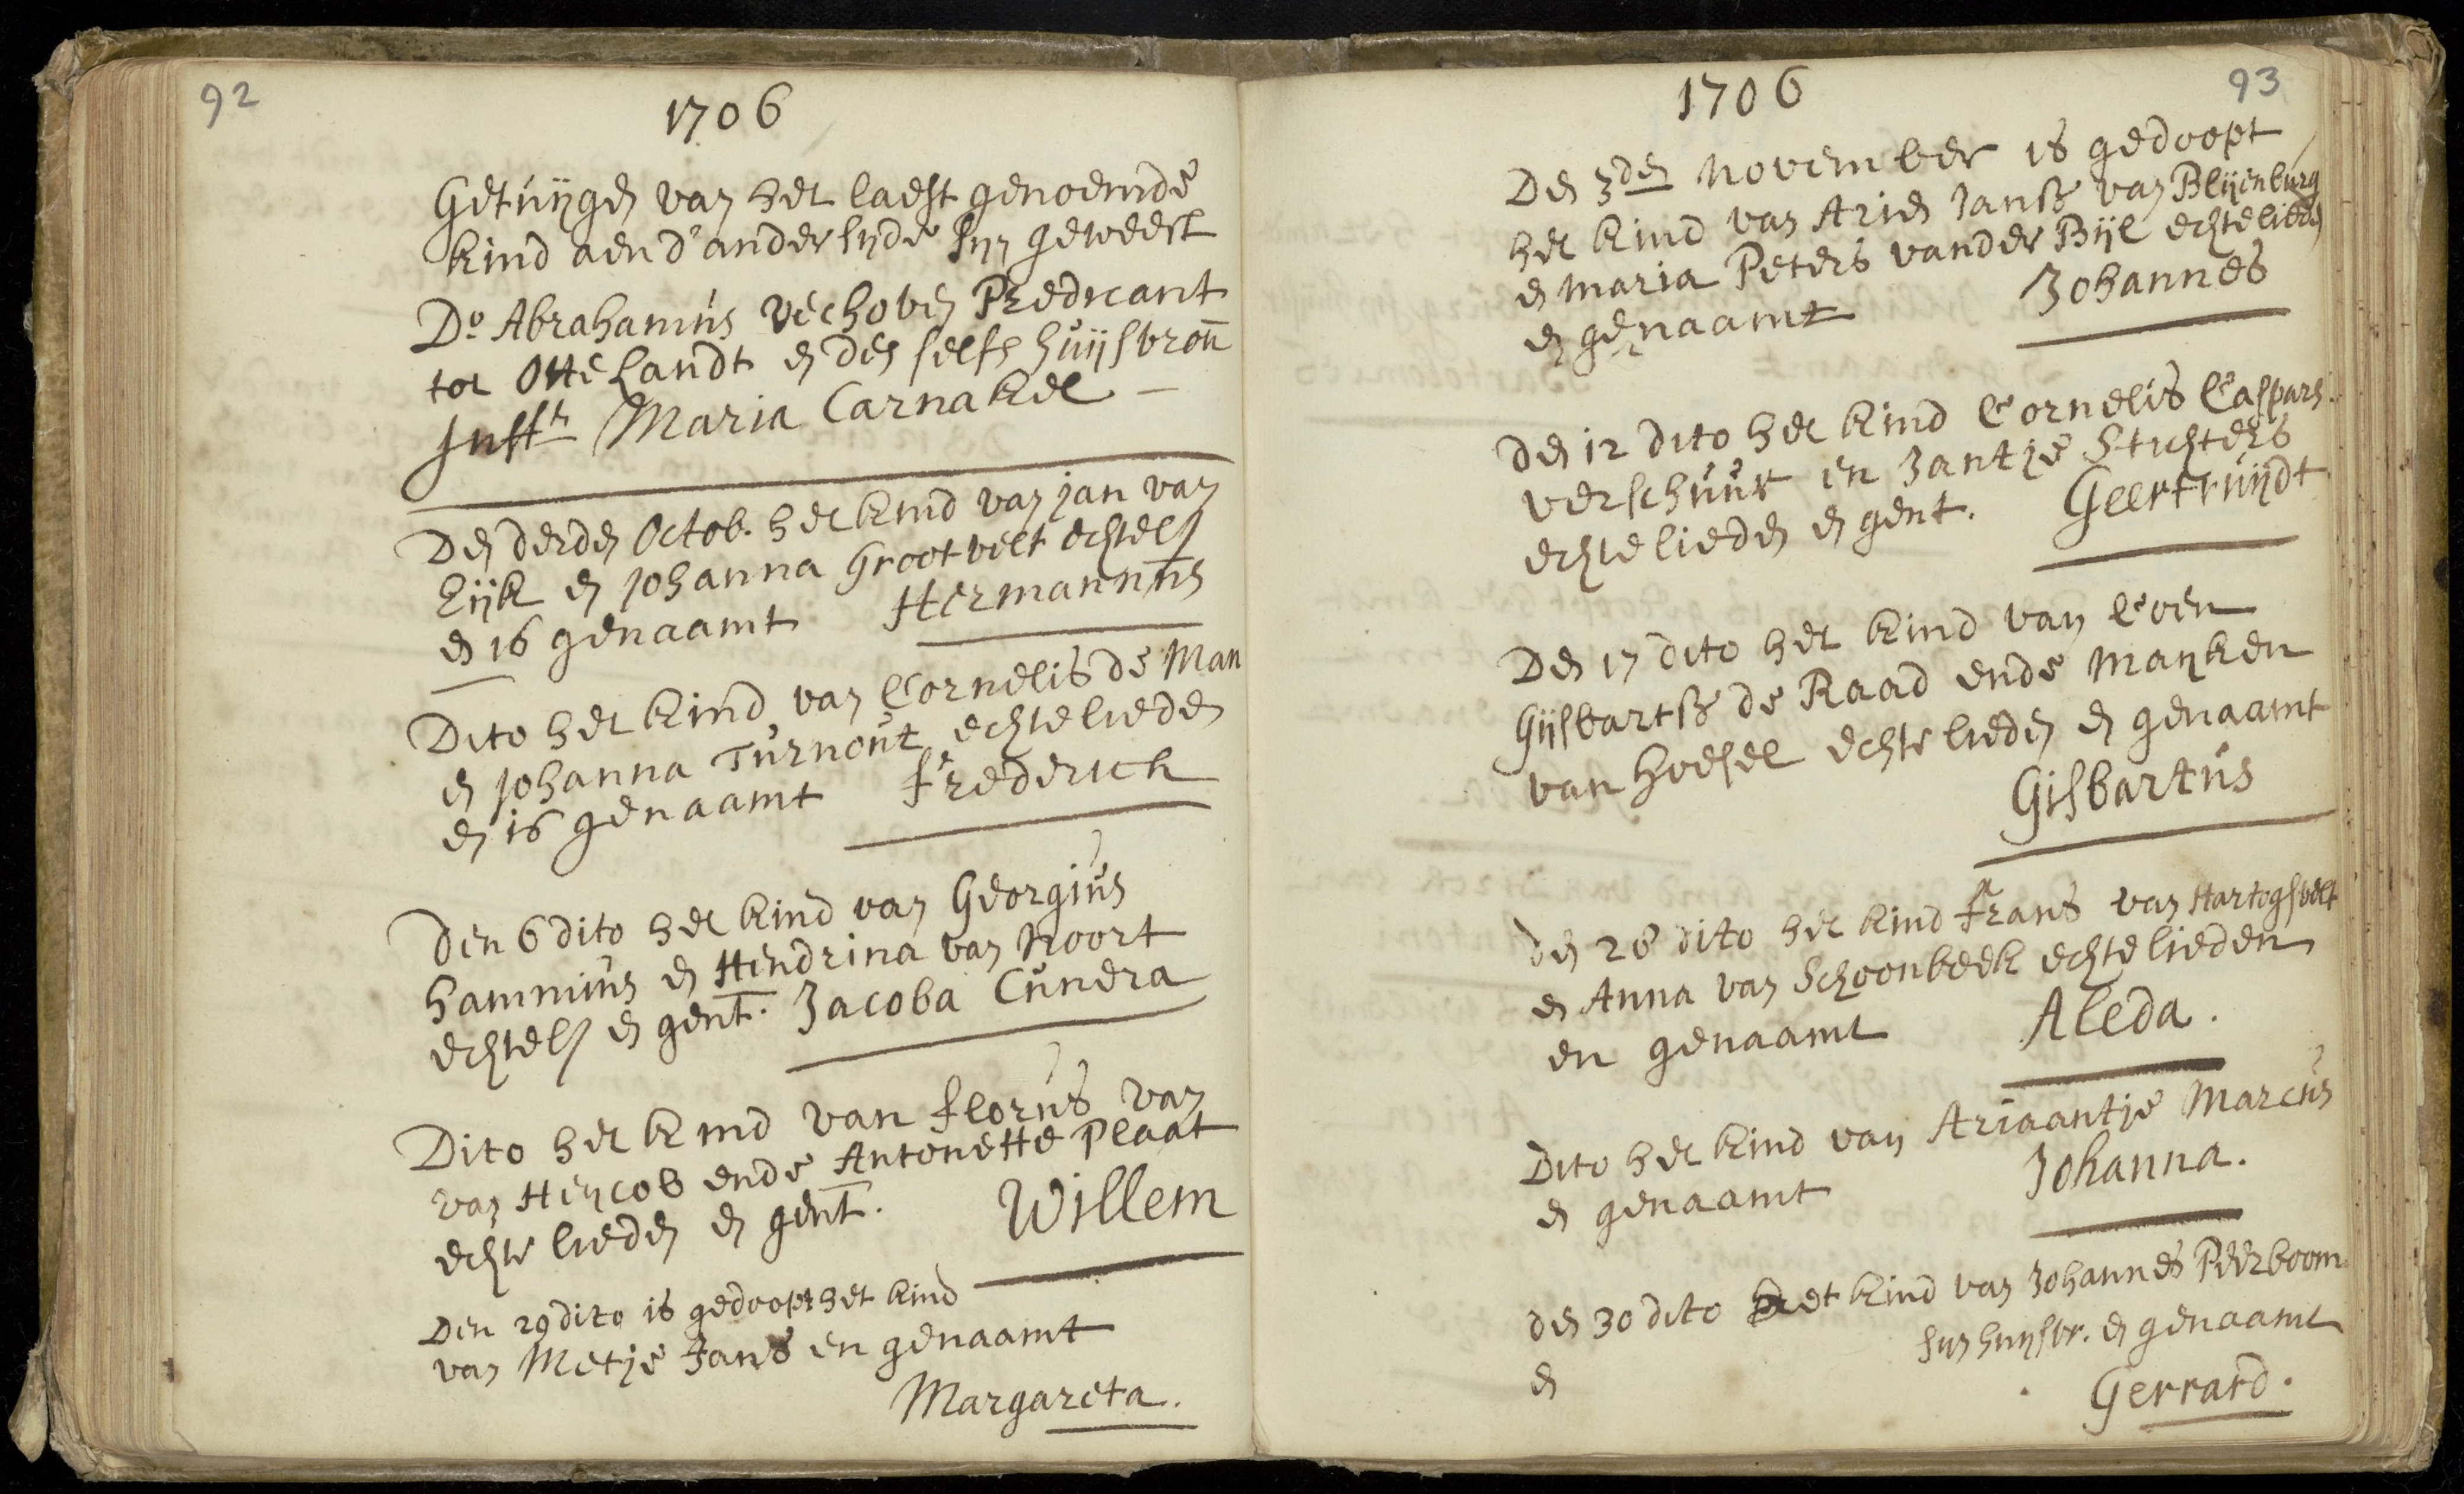 92
1706
Getuijgen van het laest genoemde
kind aen d'ander sijde sijn geweest
Do. Abrahamus Vechoven Predicant
tot Ottelandt en des selfs huijsvrou
Juffr Maria Carnakel
Den derden Octob. het kind van jan van
Eijk en Johanna Grootvelt echtel
en is genaamt Hermannus
Dito het kind van Cornelis de Man
en Johanna Turnout echtelieden
en is genaamt Frederick
Den 6 dito het kind van Georgius
Hammius en Hendrina van Noort
echtel en gent. Jacoba Cunera
Dito het kind van Florus van
van Heycob ende Antonette Plaat
echte lieden en gent. Willem
Den 29 dito is gedoopt het kind
van Metje Jans en genaamt
Margareta.
93
1706
Den 3den November is gedoopt
het kind van Arien Janss van Blijenburg
en Maria Peters vander Bijl echtelieden
en genaamt Johannes
Den 12 dito het kind Cornelis Caspars.
verschuur en Jantje Stichters
echtelieden en gent. Geertruijdt
Den 17 dito het kind van Coen
Gijsbartss de Raad ende Mayken
van Hoesel echte lieden en genaamt
Gisbartus
den 28 dito het kind Frans van Hartogsvelt
en Anna van Schoonbeek echtelieden
en genaamt Aleda.
Dito het kind van Ariaantje Marcus
en genaamt Johanna.
den 30 dito het kind van Johannes Peerboom
en sijn huijsvr. en genaamt
Gerrard.